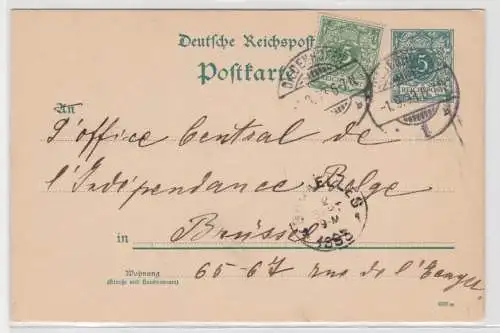 Deutsche Reichspost
Postkarte
5
REICHSPOST
5
REICHSPOST
An
l'office Central de
l'Indépendance Belge
in Brüssel
1893
Wohnung
(Straße und Hausnummer)
65-67 rue de l'